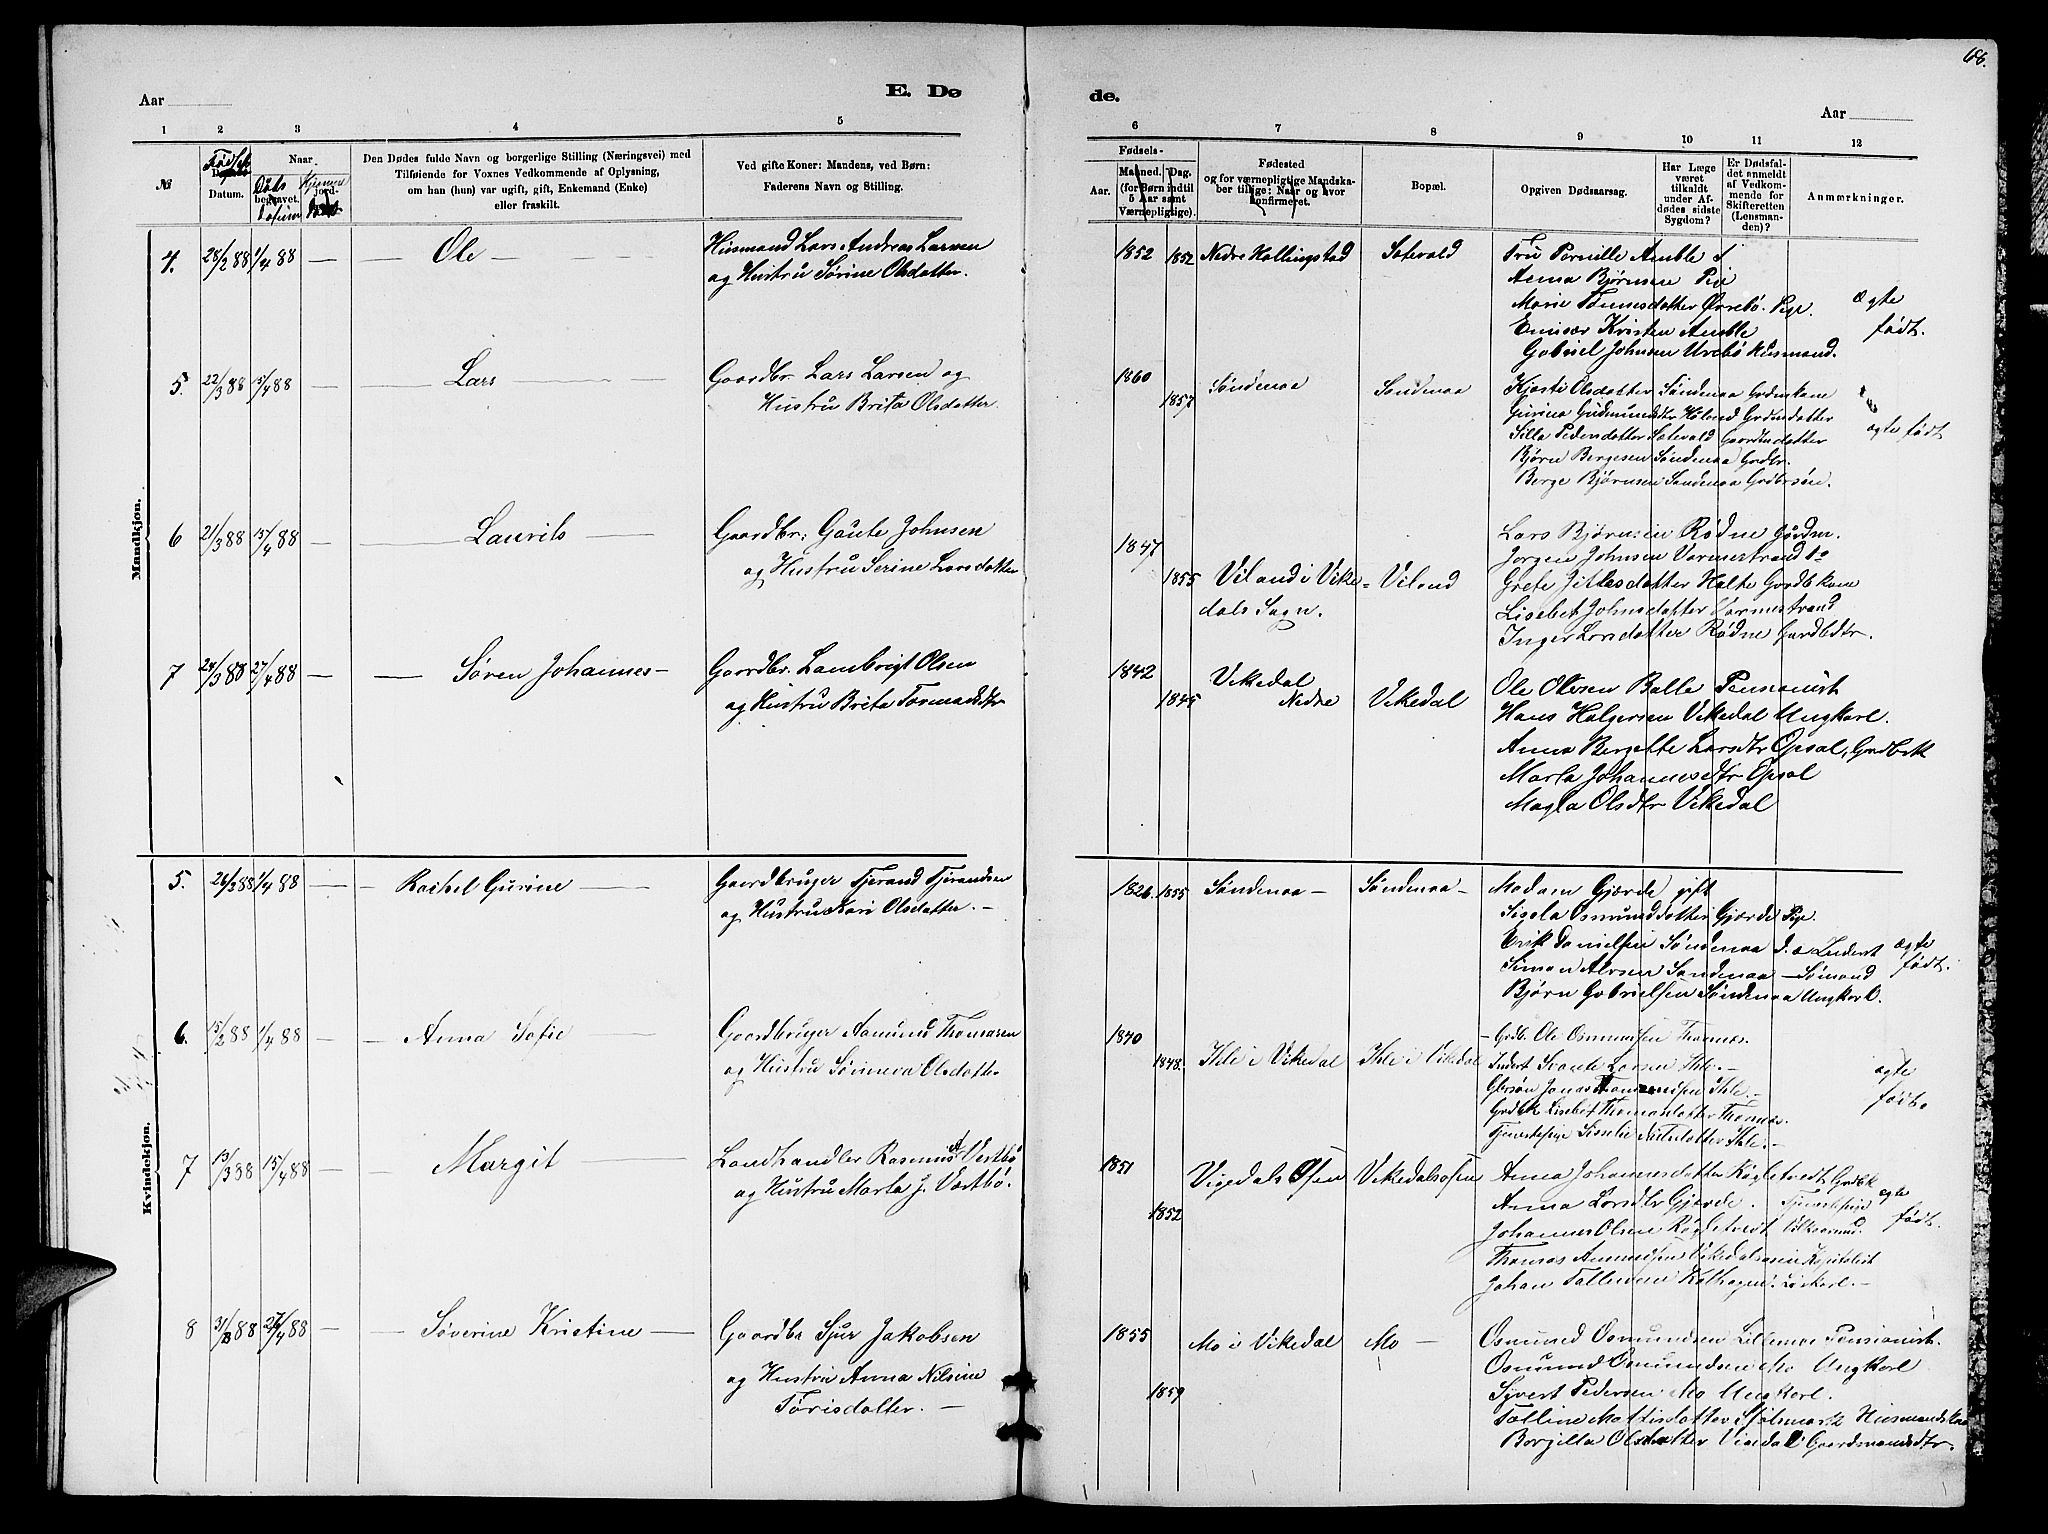 68.
E. Dø
de.
Aar
Aar
1 2 3 4 5
6 7 8 9 10 11 12
№
Datum.
Naar
begravet.
Den Dødes fulde Navn og borgerlige Stilling (Næringsvei) med
Tilføiende for Voxnes Vedkommende af Oplysning,
om han (hun) var ugift, gift, Enkemand (Enke)
eller fraskilt.
Ved gifte Koner: Mandens, ved Børn:
Faderens Navn og Stilling.
Fødsels-
Aar.
Maaned. Dag.
(for Børn indtil
5 Aar samt
Værnepligtige).
Fødested
og for værnepligtige Mandska-
ber tillige: Naar og hvor
konfirmeret.
Bopæl.
Opgiven Dødsaarsag.
Har Læge
været
tilkaldt
under Af-
dødes sidste
Sygdom?
Er Dødsfal-
det anmeldt
af Vedkom-
mende for
Skifteretten
(Lensman-
den)?
Anmærkninger.
Mandkjøn.
4. 28/2 88 1/4 88 Ole
Husmand Lars Andreas Larsen
og Hustru Sørine Olsdatter.
1852 1852 Nedre Hallingstad Satevald
Fru Pernille Amble
Anna Bjørnsen Pige
Marie Tønnesdatter Ørrebø. Pige.
Emisær Kristen Amble
Gabriel Johnsen Urebø Husmand.
Ægte
født.
5. 22/3 88 15/4 88 Lars
Gaardbr. Lars Larsen og
Hustru Brita Olsdatter.
1860 1857 Søndenaa Søndenaa
Kjøsti Olsdatter Søndenaa
Gurina Gudmundsdtr Høland
Silla Pedersdatter Satevald
Bjørn Bergesen Søndenaa Grdbr.
Berge Bjørnsen Søndenaa Grdbrsøn.
ægte født
6 21/3 88 15/4 88 Laurits
Gaardbr. Gaute Johnsen
og Hustru Serine Larsdatter
1847 1855 Viland i Vike-
dals Sogn.
Viland
Lars Bjørnsen Rødne
Jørgen Johnsen Varmestrand
Grete Jittesdatter Halte
Lisebet Johnsdatter Varmestrand
Inger Larsdatter Rødne
7 24/3 88 27/4 88 Søren Johannes
Gaardbr. Lambrigt Olsen
og Hustru Brita Tormodsdtr
1842 1845 Vikedal
Nedre
Vikedal
Ole Olesen Balle Pensionist
Hans Halgersen Vikedal Ungkarl.
Anna Bergette Larsdtr Opsal,
Marta Johannesdtr Opsal
Magla Olsdtr Vikedal
Kvindekjøn.
5. 26/3 88 1/4 88 Rachel Gurine
Gaardbruger Tjerand Tjerandsen
og Hustru Kari Olsdatter.
1826. 1855 Søndenaa Søndenaa
Madam Gjærde gift
Sisela Osmundsdatter Gjærde Pige.
Erik Danielsen Søndenaa
Simon Alvsen Søndenaa Sømand
Bjørn Gabrielsen Søndenaa Ungkarl.
ægte
født.
6. 15/2 88 1/4 88 Anna Sofie
Gaardbruger Aamund Thomasen
og Hustru Sørineva Olsdatter
1840 1848. Ihle i Vikedal Ihle i Vikedal
Grdb. Ole Osmundsen Thormøs.
Larsen Ihle.
Ihle.
Lisebet Thomasdatter
Tjenestepige Ihle.
ægte
født.
7 13/3 88 15/4 88 Margit
Landhandler Rasmus Vestbø
og Hustru Marta J. Vestbø.
1851 1852 Vigedals Osen Vikedalsosen
Anna Johannesdatter
Anna Larsdtr Gjærde. Tjenestepige
Johannes Olsen
Thomas Amundsen Vikedalsosen Kapitalist
Johan Tollevsen
ægte
født.
8 31/3 88 26/4 88 Søverine Kristine
Gaardbr Sjur Jakobsen
og Hustru Anna Nilsine
Tørisdatter.
1855 1859 Mo i Vikedal Mo
Osmund Osmundsen Lillemoe Pensionist.
Osmund Osmundsen Mo Ungkarl.
Syvert Pedersen Mo Ungkarl.
Talline Mattisdatter
Borgilla Olsdatter Vindal Gaardmandsdtr.